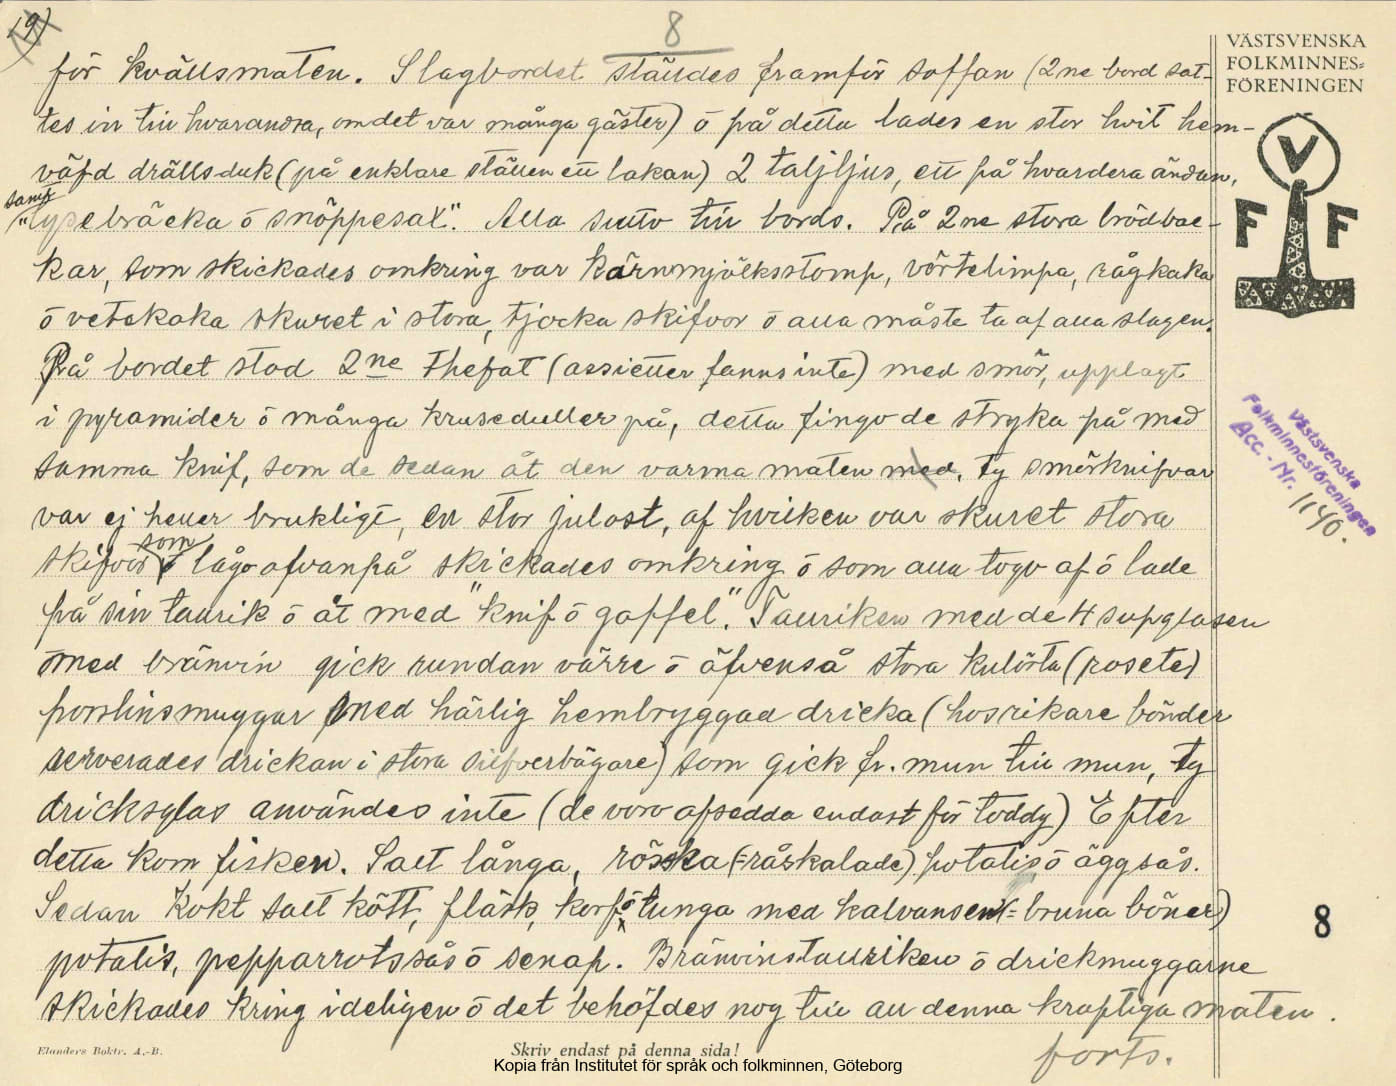 19)
8
VÄSTSVENSKA
FOLKMINNES=
FÖRENINGEN
för kvällsmaten. Slagbordet ställdes framför soffan (2ne bord sat-
tes in till hvarandra, om det var många gäster) ō på detta lades en stor hvit hem-
väfd drällsduk (på enklare ställen ett lakan) 2 taljljus, ett på hvardera ändan,
samt
"lysebräcka ō snöppesax". Alla sutto till bords. På 2ne stora brödbac-
kar, som skickades omkring var kärnmjölksstomp, vörtelimpa, rågkaka
ō vetekaka skuret i stora, tjocka skifvor ō alla måste ta af alla slagen.
På bordet stod 2ne Thefat (assietter fanns inte) med smör, upplagt
i pyramider ō många kruseduller på, detta fingo de stryka på med
samma knif, som de sedan åt den varma maten med, ty smörknifvar
var ej heller brukligt, en stor julost, af hvilken var skuret stora
skifvor som låg ofvanpå skickades omkring ō som alla togo af ō lade
på sin tallrik ō åt med "knif ō gaffel". Tallriken med de 4 supglasen
med bränvin gick rundan värre ō äfvenså stora kulörta (rosete)
porslinsmuggar med härlig hembryggad dricka (hos rikare bönder
serverades drickan i stora silfverbägare) som gick fr. mun till mun, ty
dricksglas användes inte (de voro afsedda endast för toddy) Efter
detta kom fisken. Salt långa, rösska (=råskalade) potatis ō äggsås.
Sedan Kokt salt kött, fläsk, korf ō tunga med kalvansen (= bruna böner)
potatis, pepparrotssås ō senap. Bränvinstallriken ō drickmuggarne
skickades kring ideligen ō det behöfdes nog till all denna kraftiga maten.
forts.
V
F F
Västsvenska
Folkminnesföreningen
Acc. - Nr. 1140.
8
Elanders Boktr. A.-B.
Skriv endast på denna sida!
Kopia från Institutet för språk och folkminnen, Göteborg